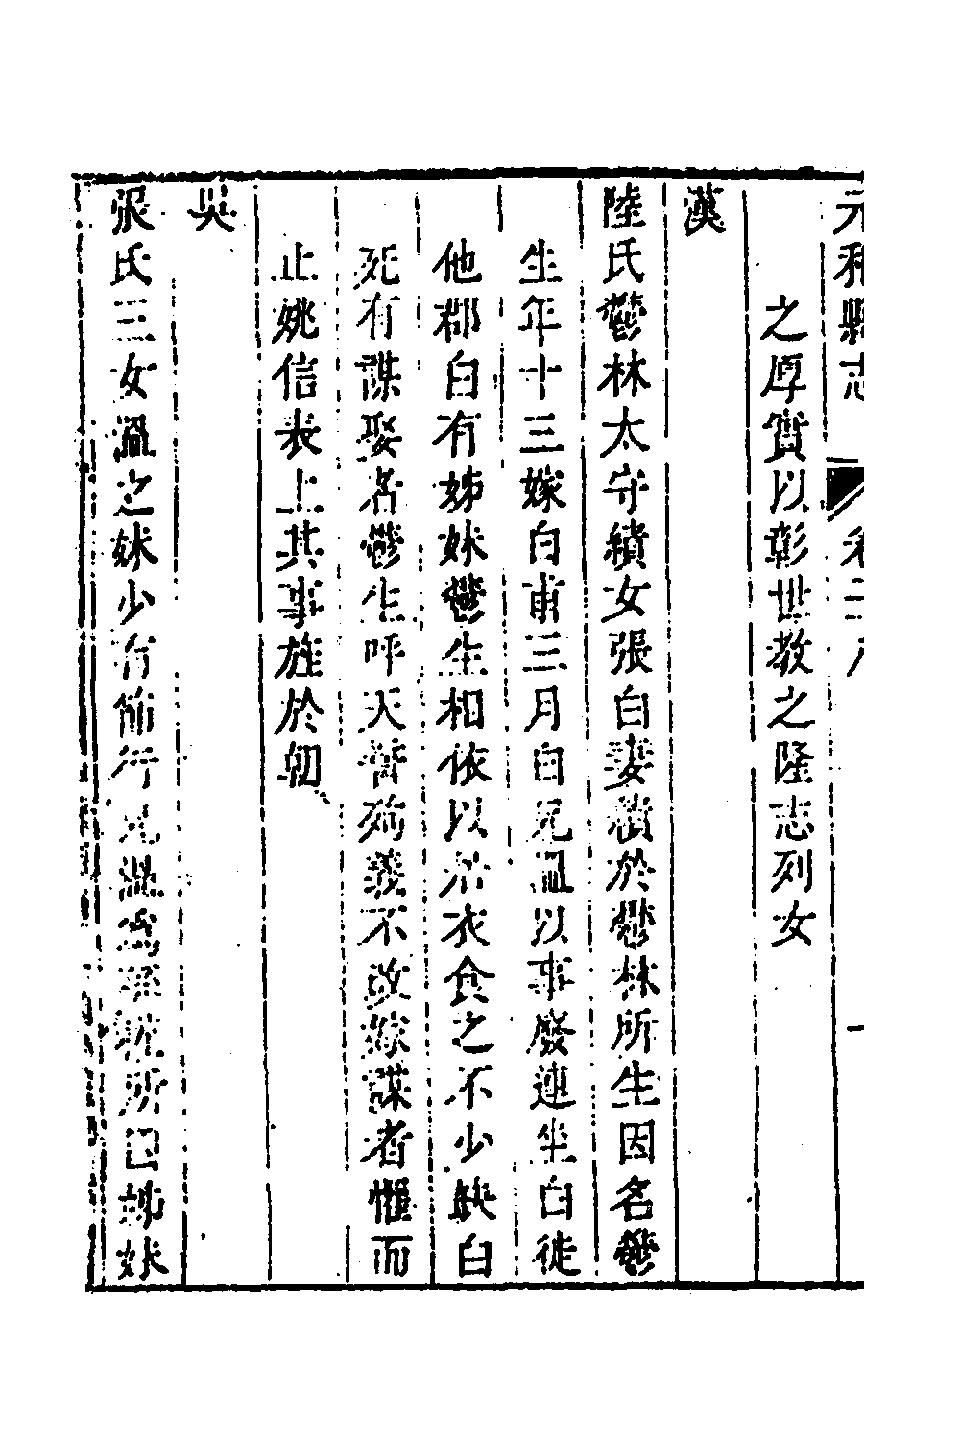 元和縣志 卷二
之厚實以彰世教之隆志列女
漢
陸氏鬱林太守績女張白妻績於鬱林所生因名鬱
生年十三嫁白甫三月白兄溫以事廢連坐白徙
他郡白有姊妹鬱生相依以居衣食之不少缺白
死有謀娶者鬱生呼天誓殉義不改嫁謀者懼而
止姚信表上其事旌於朝
吳
張氏三女溫之妹少有節行兄溫為孫權所囚姊妹